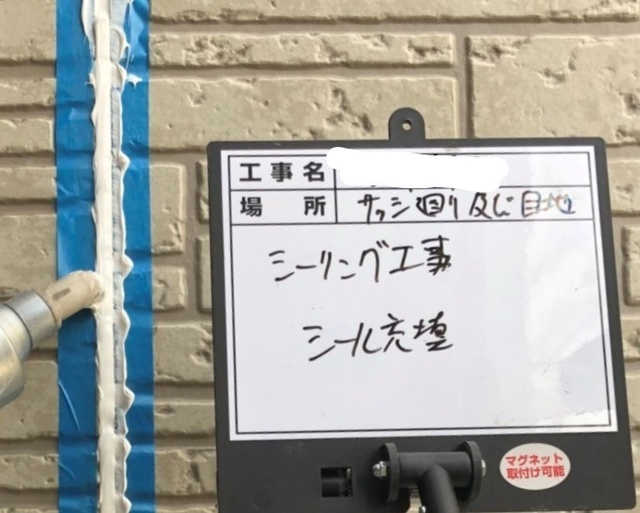 工事名
場所 サッシ回り及び目地
シーリング工事
シール充填
マグネット
取付け可能